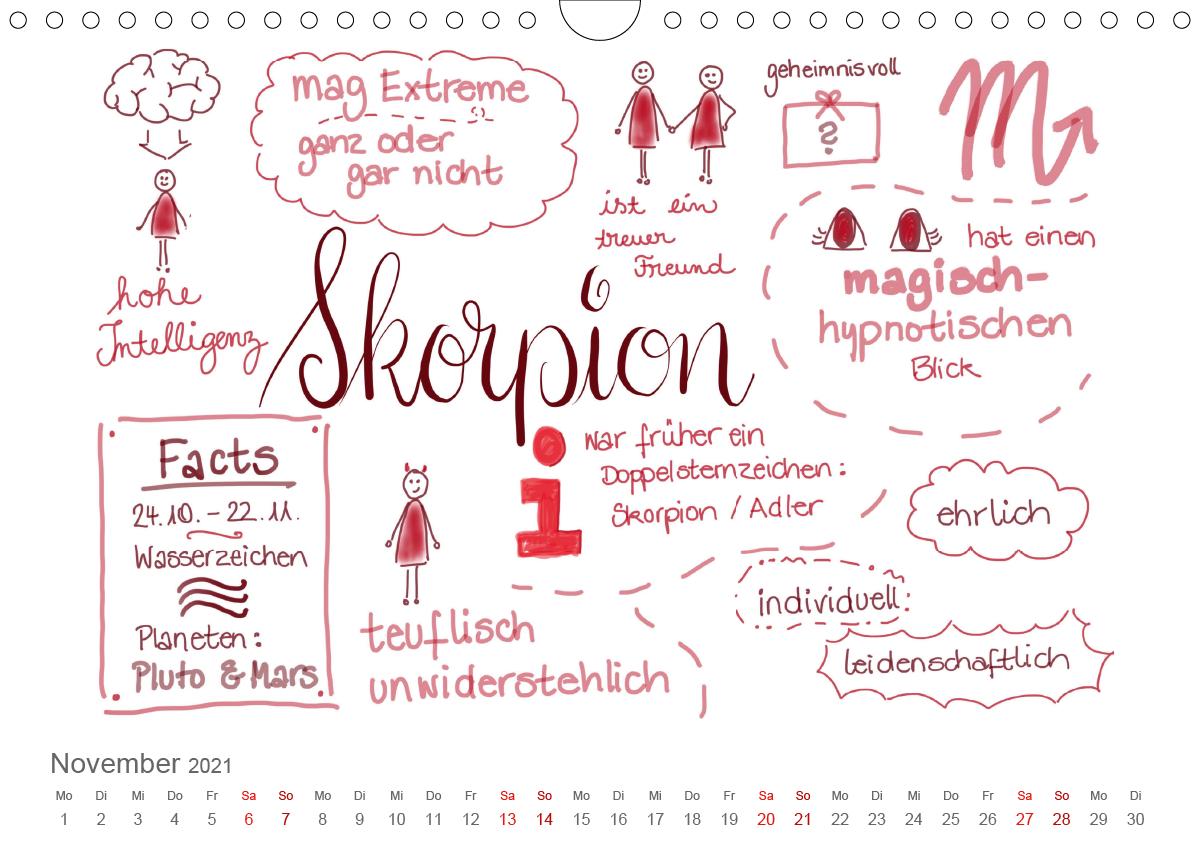 mag Extreme
ganz oder
gar nicht
geheimnisvoll
?
ist ein
treuer
Freund
hat einen
magisch-
hypnotischen
Blick
hohe
Intelligenz
Skorpion
Facts
24.10. - 22.11.
Wasserzeichen
Planeten:
Pluto & Mars
i
war früher ein
Doppelsternzeichen:
Skorpion / Adler
ehrlich
individuell
leidenschaftlich
teuflisch
unwiderstehlich
November 2021
Mo Di Mi Do Fr Sa So Mo Di Mi Do Fr Sa So Mo Di Mi Do Fr Sa So Mo Di Mi Do Fr Sa So Mo Di
1 2 3 4 5 6 7 8 9 10 11 12 13 14 15 16 17 18 19 20 21 22 23 24 25 26 27 28 29 30